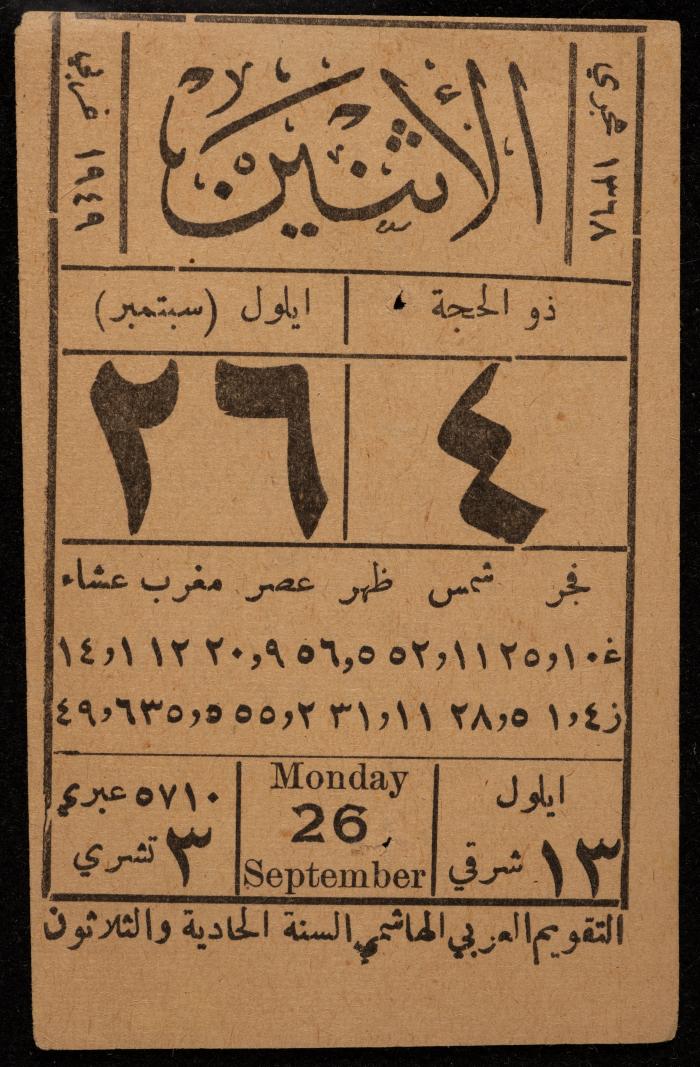 ١٣٦٨ هجري
الأثنين
١٩٤٩ غربي
ذو الحجة ايلول (سبتمبر)
٤ ٢٦
فجر شمس ظهر عصر مغرب عشاء
غ ١٠و٢٥ ١١و٥٢ ٥و٥٦ ٩و٢٠ ١٢ ١و١٤
ز ٤و١ ٥و٢٨ ١١و٣١ ٢و٥٥ ٥و٣٥ ٦و٤٩
ايلول
١٣ شرقي
Monday
26
September
٥٧١٠ عبري
٣ تشري
التقويم العربي الهاشمي السنة الحادية والثلاثون